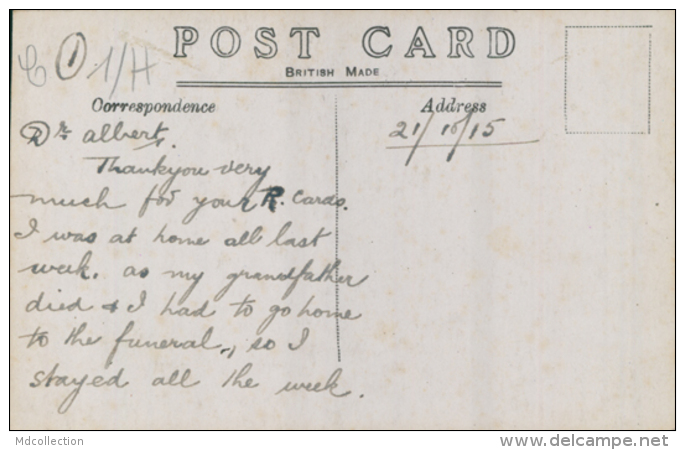 POST CARD
BRITISH MADE
1/H
Correspondence
Address
21/10/15
Dr albert.
Thankyou very
much for your P. Cards.
I was at home all last
week. as my grandfather
died & I had to go home
to the funeral, so I
stayed all the week.
Mdcollection
www.delcampe.net